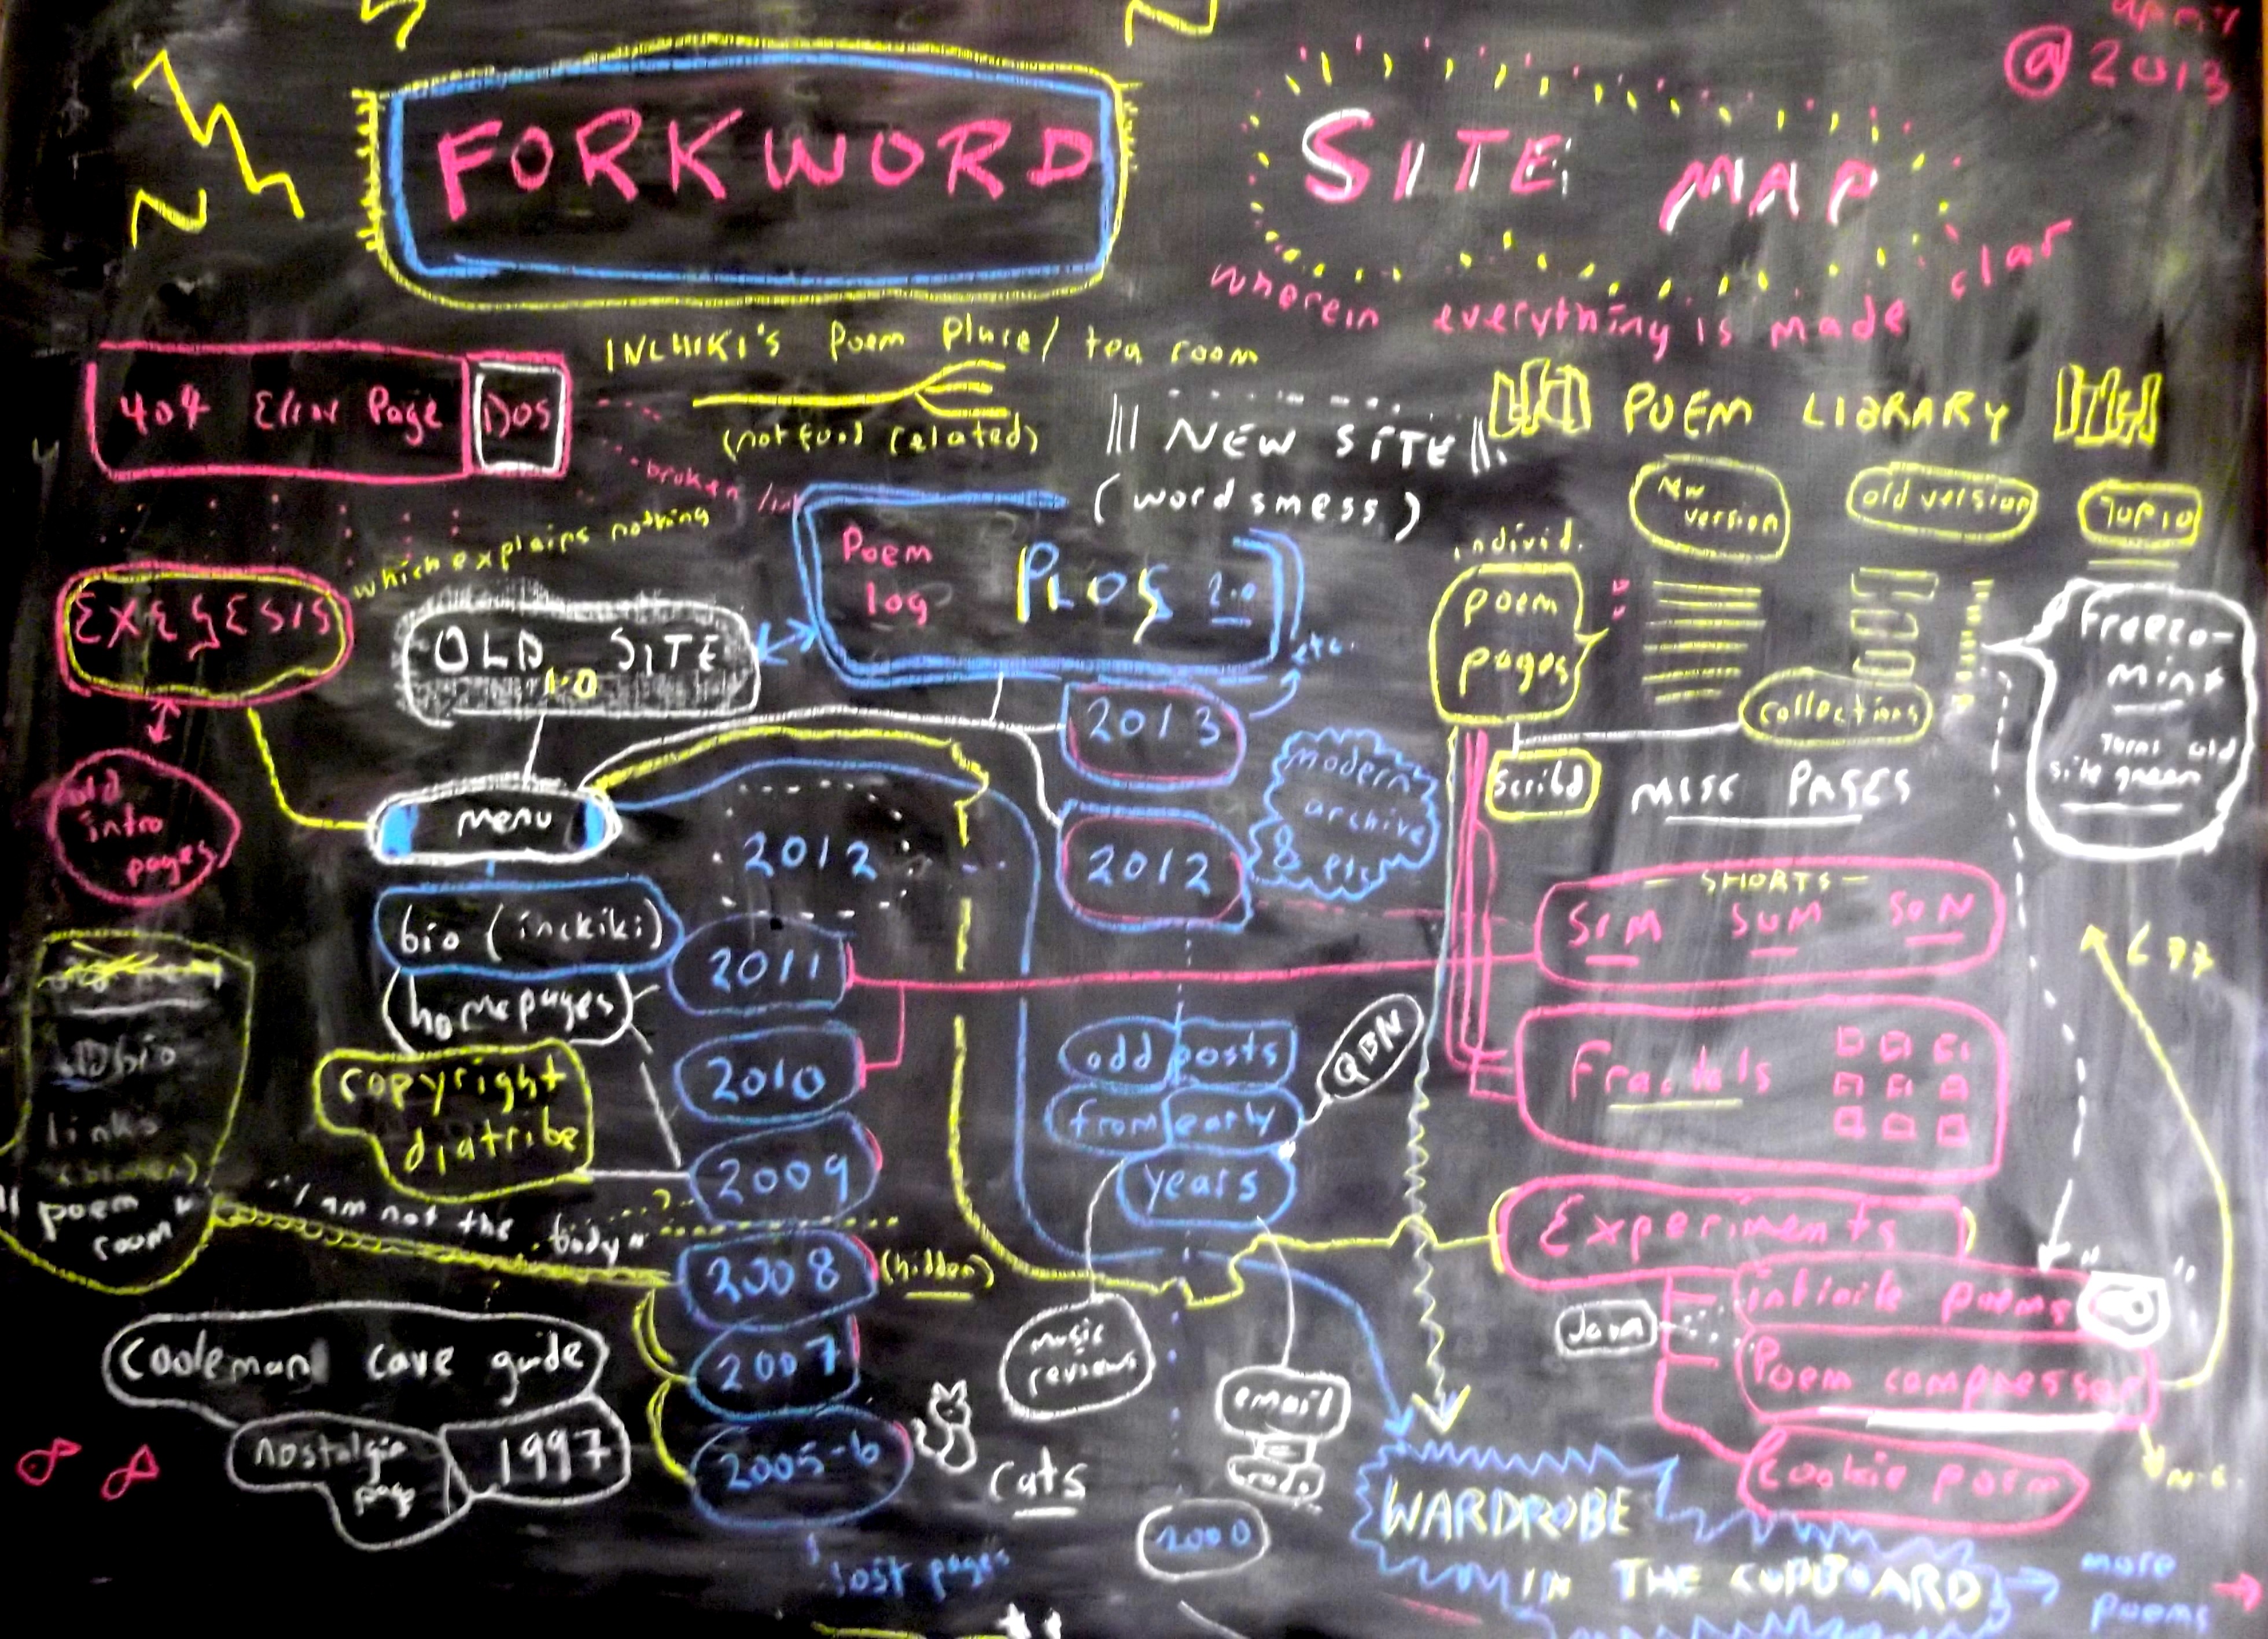 @ 2013
FORKWORD
SITE MAP
wherein everything is made clar
INCHIKI's Poem Place / tea room
(not food related)
404 Error Page
DOS
broken link
NEW SITE
(wordsmess)
POEM LIBRARY
new version
old version
TOP 10
individ.
poem
pages
collections
Scribd
Freezo-
mint
Turns old
site green
EXEGESIS
which explains nothing
OLD SITE
1.0
Poem
log
PLOG 2.0
etc.
2013
2012
modern
archive
& etc
old
intro
pages
menu
2012
MISC PAGES
bio (inckiki)
homepages
2011
2010
2009
2008
(hidden)
2007
2005-6
lost pages
- SHORTS -
SIM SUM SON
Fractals
Experiments
infinite poems
Java
Poem compressor
Cookie poem
N.E.
copyright
diatribe
old bio
links
poem
room
"I am not the body"
?
odd posts
from early
years
QBN
music
reviews
email
2000
Cooleman cave guide
nostalgia
page
1997
cats
WARDROBE
IN THE CUPBOARD
more
poems